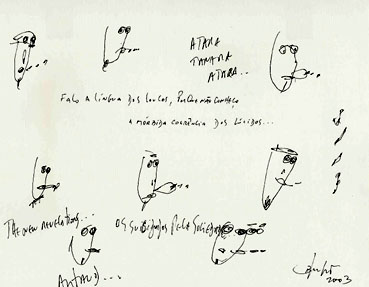 ATARA
TATARA
ATARA..
FALO A LÍNGUA DOS LOUCOS, PORQUE NÃO CONHEÇO
A MÓRBIDA COERÊNCIA DOS LÚCIDOS...
THE NEW REVELATIONS...
OS SUICIDADOS PELA SOCIEDADE
ARTAUD...
2003